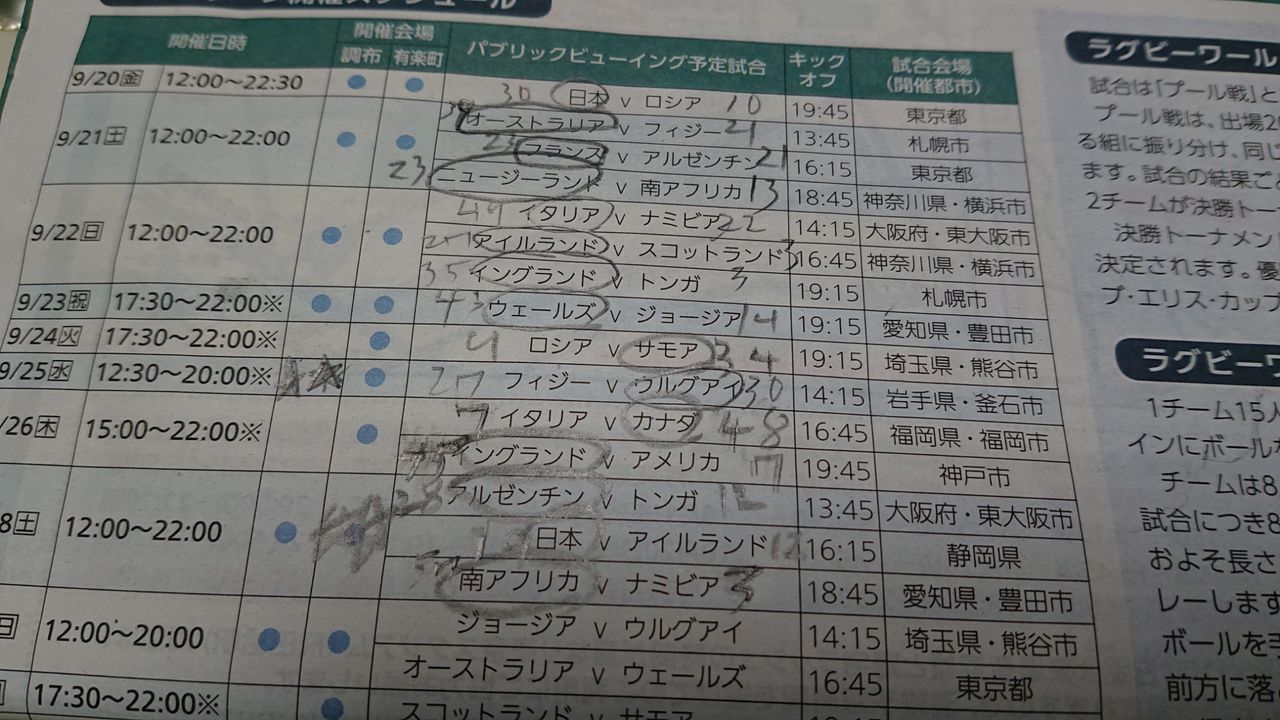 開催スケジュール
開催日時 開催会場 パブリックビューイング予定試合 キックオフ 試合会場(開催都市)
調布 有楽町
9/20金 12:00〜22:30 30 日本 v ロシア 10 19:45 東京都
9/21土 12:00〜22:00 オーストラリア v フィジー 21 13:45 札幌市
23 フランス v アルゼンチン 21 16:15 東京都
23 ニュージーランド v 南アフリカ 13 18:45 神奈川県・横浜市
9/22日 12:00〜22:00 イタリア v ナミビア 22 14:15 大阪府・東大阪市
アイルランド v スコットランド 3 16:45 神奈川県・横浜市
35 イングランド v トンガ 3 19:15 札幌市
9/23祝 17:30〜22:00※ 43 ウェールズ v ジョージア 14 19:15 愛知県・豊田市
9/24火 17:30〜22:00※ 9 ロシア v サモア 34 19:15 埼玉県・熊谷市
9/25水 12:30〜20:00※ 27 フィジー v ウルグアイ 30 14:15 岩手県・釜石市
/26木 15:00〜22:00※ 7 イタリア v カナダ 48 16:45 福岡県・福岡市
イングランド v アメリカ 19:45 神戸市
8土 12:00〜22:00 28 アルゼンチン v トンガ 12 13:45 大阪府・東大阪市
日本 v アイルランド 12 16:15 静岡県
南アフリカ v ナミビア 3 18:45 愛知県・豊田市
日 12:00〜20:00 ジョージア v ウルグアイ 14:15 埼玉県・熊谷市
オーストラリア v ウェールズ 16:45 東京都
17:30〜22:00※ スコットランド v サモア
ラグビーワール
試合は「プール戦」と
プール戦は、出場20
る組に振り分け、同じ
ます。試合の結果ご
2チームが決勝トー
決勝トーナメン
決定されます。優
プ・エリス・カップ
ラグビーワ
1チーム15人
インにボールを
チームは8
試合につき8
およそ長さ
レーします
ボールを手
前方に落